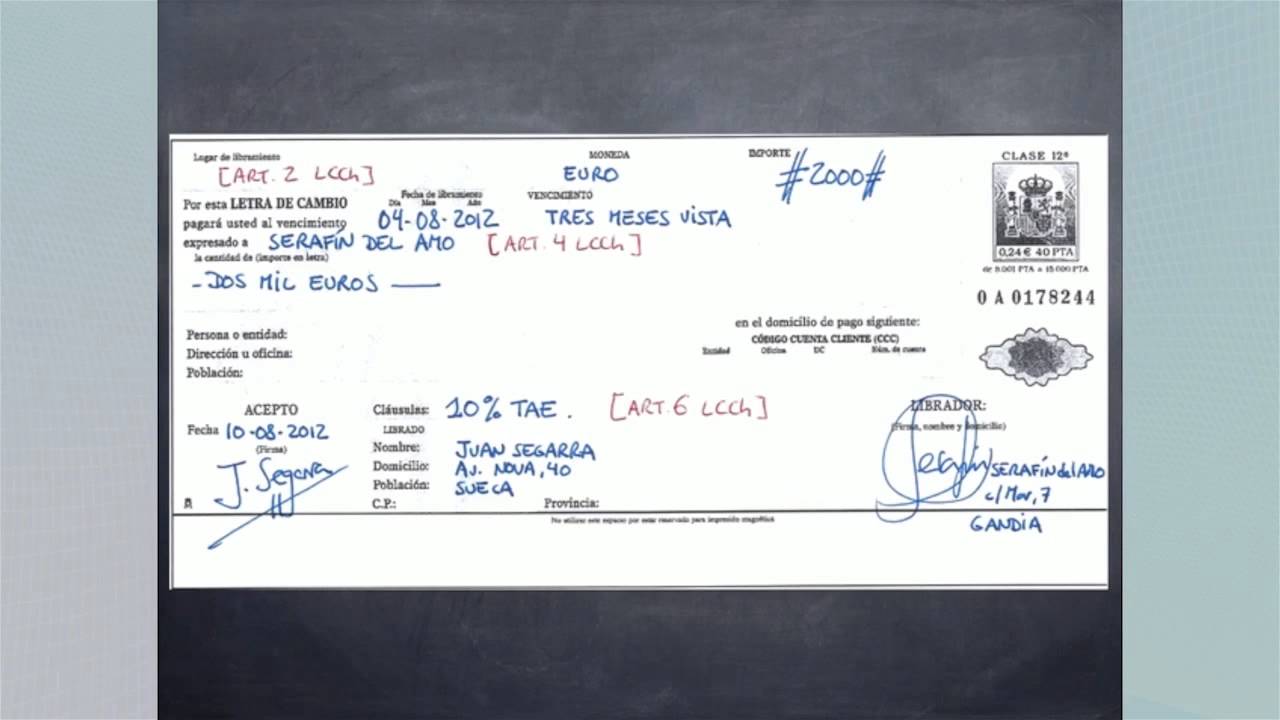 Lugar de libramiento
MONEDA
IMPORTE
CLASE 12ª
[ART. 2 LCCh]
EURO
#2000#
Por esta LETRA DE CAMBIO
Fecha de libramiento
Día Mes Año
VENCIMIENTO
pagará usted al vencimiento
04-08-2012
TRES MESES VISTA
expresado a
SERAFÍN DEL AMO
[ART. 4 LCCh]
0,24 € 40 PTA
la cantidad de (importe en letra)
de 8.001 PTA a 15.000 PTA
- DOS MIL EUROS —
0 A 0178244
Persona o entidad:
en el domicilio de pago siguiente:
Dirección u oficina:
CÓDIGO CUENTA CLIENTE (CCC)
Entidad Oficina DC Núm. de cuenta
Población:
ACEPTO
Cláusulas: 10% TAE.
[ART. 6 LCCh]
LIBRADOR:
Fecha 10-08-2012
LIBRADO
(Firma, nombre y domicilio)
(Firma)
Nombre: JUAN SEGARRA
J. Segarra
Domicilio: AV. NOVA, 40
Serafín
SERAFÍN del AMO
Población: SUECA
c/ Mar, 7
A
C.P.:
Provincia:
No utilizar este espacio por estar reservado para impresión magnética
GANDIA